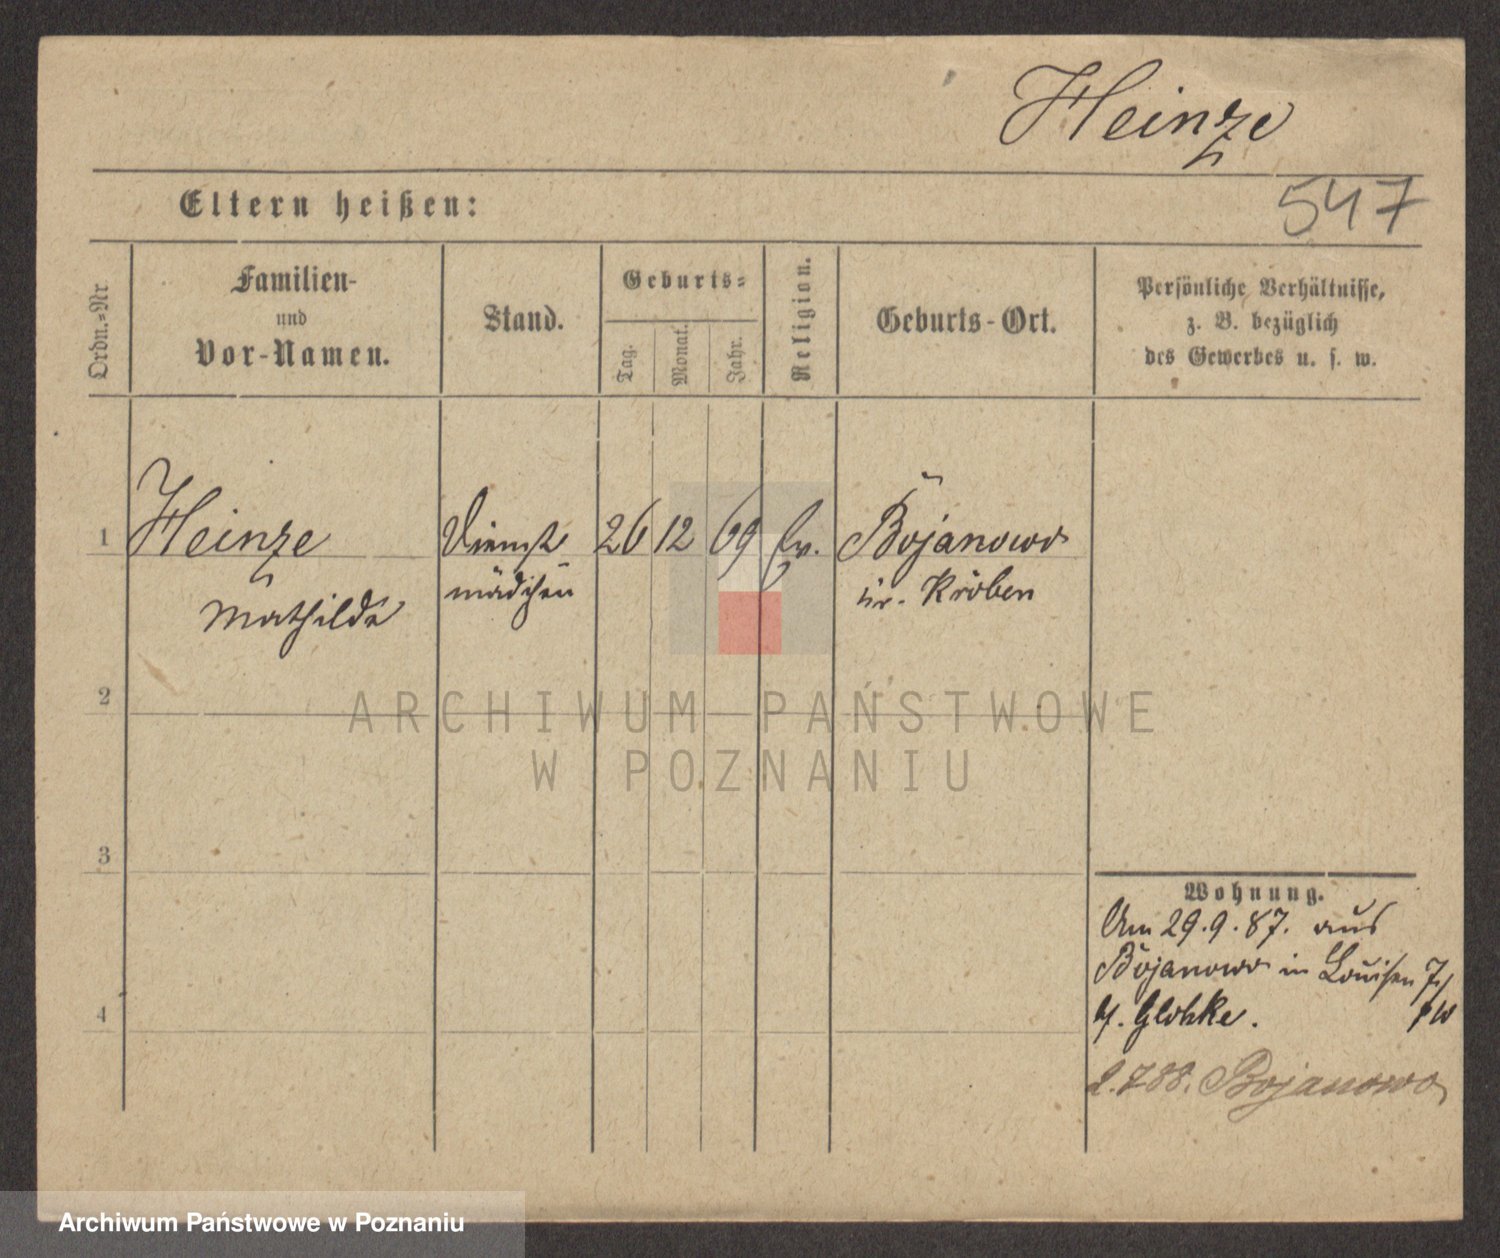 Heinze
547
Eltern heißen:
Ordn.=Nr
Familien-
und
Vor-Namen.
Stand.
Geburts=
Tag.
Monat.
Jahr.
Religion.
Geburts-Ort.
Persönliche Verhältnisse,
z. B. bezüglich
des Gewerbes u. s. w.
1 Heinze Dienst 26 12 69 Ev. Bojanowo
Mathilde mädchen Kr. Kröben
2
3
4
Wohnung.
Am 29.9.87. aus
Bojanowo in Louisen 7/
b/. Globke.
2.7 88. Bojanowo
ARCHIWUM PAŃSTWOWE
W POZNANIU
Archiwum Państwowe w Poznaniu